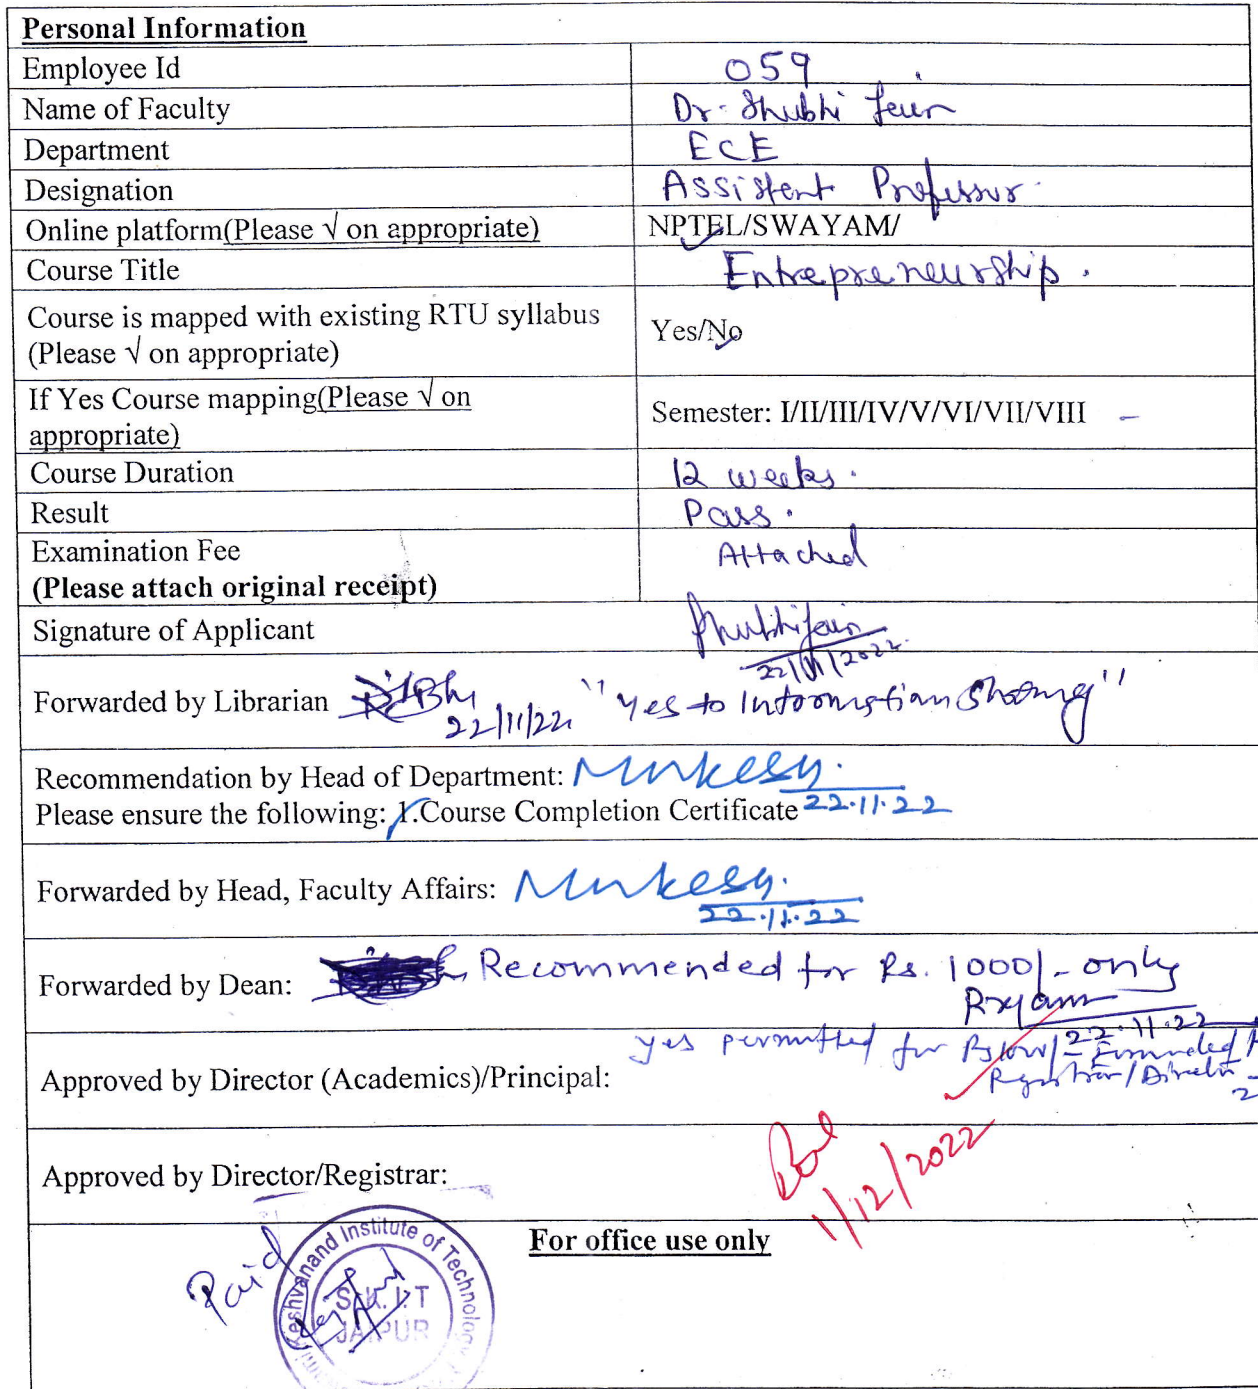 Personal Information
Employee Id 059
Name of Faculty Dr. Shubhi Jain
Department ECE
Designation Assistent Professor.
Online platform(Please √ on appropriate) NPTEL/SWAYAM/
Course Title Entrepreneurship.
Course is mapped with existing RTU syllabus
(Please √ on appropriate) Yes/No
If Yes Course mapping(Please √ on
appropriate) Semester: I/II/III/IV/V/VI/VII/VIII -
Course Duration 12 weeks.
Result Pass.
Examination Fee Attached
(Please attach original receipt)
Signature of Applicant Shubhi Jain
22/11/2022
Forwarded by Librarian "Yes to
22/11/22
Recommendation by Head of Department: Mukesh.
Please ensure the following: 1.Course Completion Certificate 22.11.22
Forwarded by Head, Faculty Affairs: Mukesh.
22.11.22
Forwarded by Dean: Recommended for Rs. 1000/- only
22.11.22
yes permitted for
Approved by Director (Academics)/Principal: Registrar/Director
1/12/2022
Approved by Director/Registrar:
For office use only
Paid
Keshvanand Institute of Technology
S.K.I.T
JAIPUR